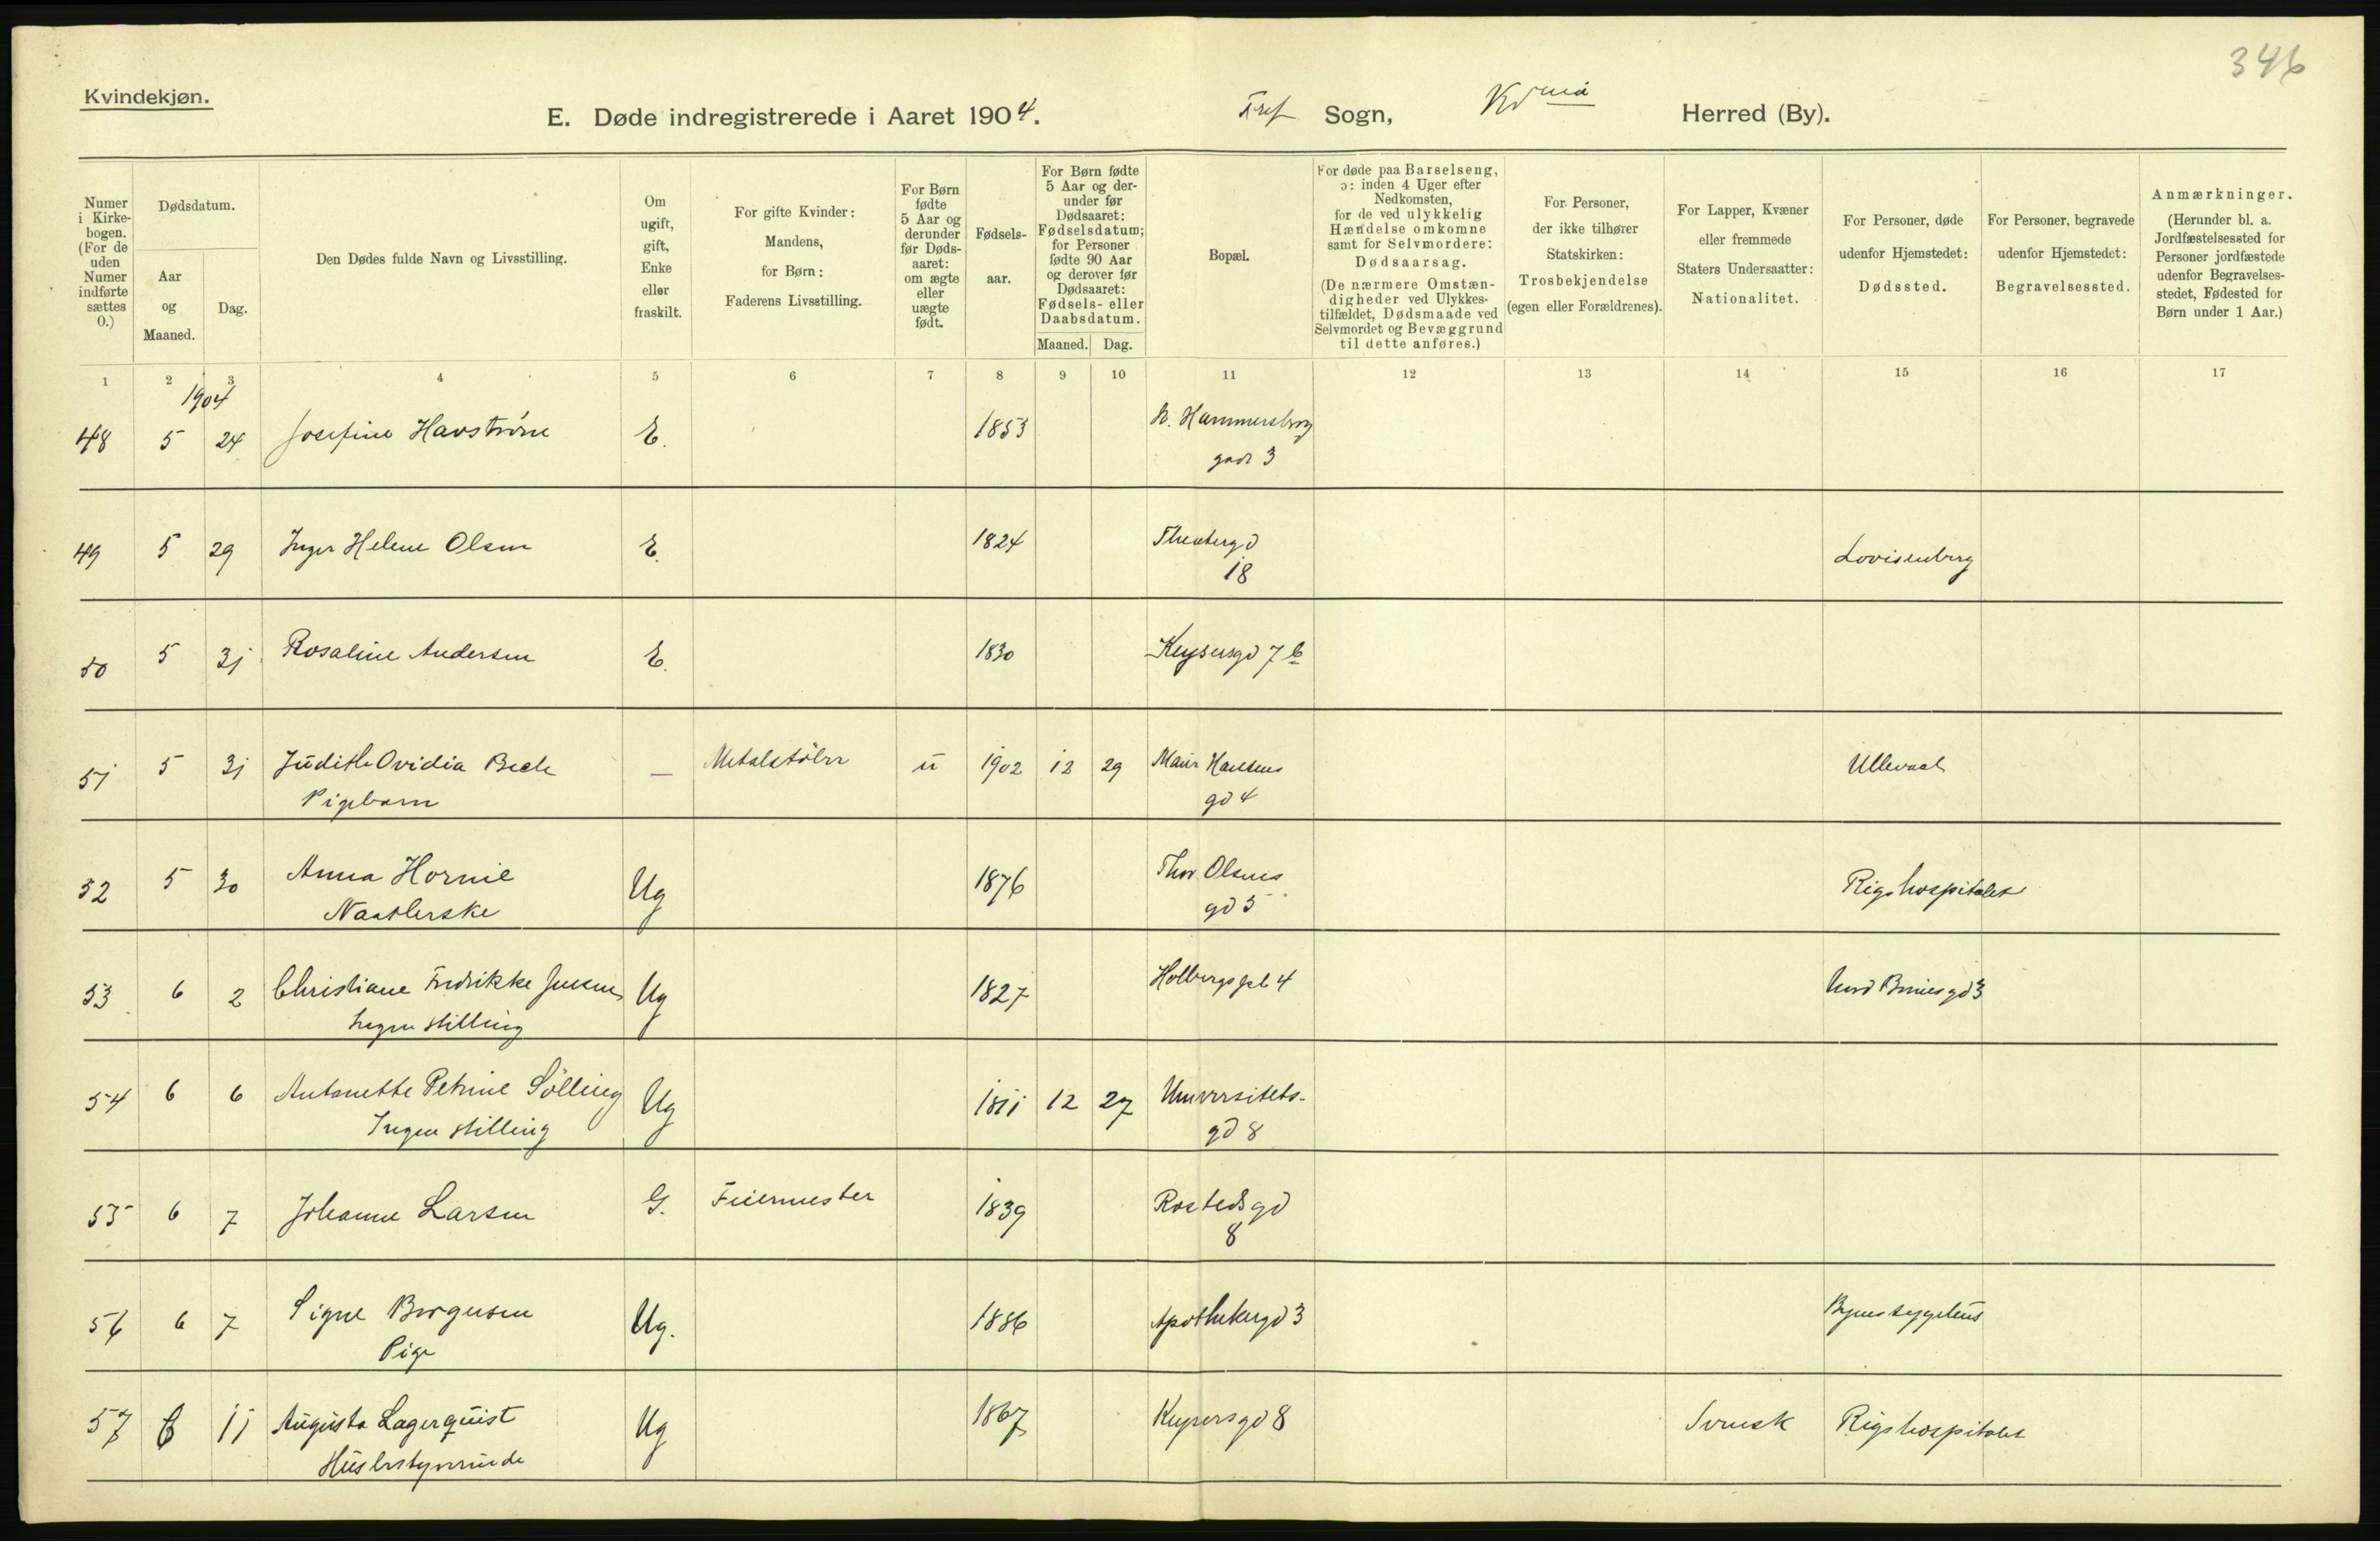 346
Kvindekjøn.
E. Døde indregistrerede i Aaret 1904. Tref Sogn, Kr.nia Herred (By).
Numer i Kirke- bogen. (For de uden Numer indførte sættes 0.)
Dødsdatum.
Aar og Maaned.
Dag.
Den Dødes fulde Navn og Livsstilling.
Om ugift, gift, Enke eller fraskilt.
For gifte Kvinder: Mandens, for Børn: Faderens Livsstilling.
For Børn fødte 5 Aar og derunder før Døds- aaret: om ægte eller uægte født.
Fødsels- aar.
For Børn fødte 5 Aar og der- under før Dødsaaret: Fødselsdatum; for Personer fødte 90 Aar og derover før Dødsaaret: Fødsels- eller Daabsdatum.
Maaned. Dag.
Bopæl.
For døde paa Barselseng, ɔ: inden 4 Uger efter Nedkomsten, for de ved ulykkelig Hændelse omkomne samt for Selvmordere: Dødsaarsag. (De nærmere Omstæn- digheder ved Ulykkes- tilfældet, Dødsmaade ved Selvmordet og Bevæggrund til dette anføres.)
For Personer, der ikke tilhører Statskirken: Trosbekjendelse (egen eller Forældrenes).
For Lapper, Kvæner eller fremmede Staters Undersaatter: Nationalitet.
For Personer, døde udenfor Hjemstedet: Dødssted.
For Personer, begravede udenfor Hjemstedet: Begravelsessted.
Anmærkninger. (Herunder bl. a. Jordfæstelsessted for Personer jordfæstede udenfor Begravelses- stedet, Fødested for Børn under 1 Aar.)
1 2 3 4 5 6 7 8 9 10 11 12 13 14 15 16 17
1904
48 5 24 Josefine Havstrøm E. 1853 N. Hammersborg
gade 3
49 5 29 Inger Helene Olsen E. 1824 Theatergd
18 Lovisenberg
50 5 31 Rosaline Andersen E. 1830 Keysersgd 7 b
51 5 31 Judith Ovidia Beck — Metalstøber u 1902 12 29 Mari Hansens
Pigebarn gd 4 Ullevaal
52 5 30 Anna Hornie Ug 1876 Thor Olsens
Naatlerske gd 5 Rigshospitalet
53 6 2 Christiane Fredrikke Jensen Ug 1827 Holbergs gd 4
Ingen stilling gd 3
54 6 6 Antonette Petrine Sølling Ug 1811 12 27 Universitets-
Ingen stilling gd 8
55 6 7 Johanne Larsen G. Feiermester 1839 Rostedsgd
8
56 6 7 Signe Borgersen Ug. 1886 Apothekergd 3 Byens sygehus
Pige
57 6 11 Augusta Lagerquist Ug 1867 Keysersgd 8 Svensk Rigshospitalet
Husbestyrerinde